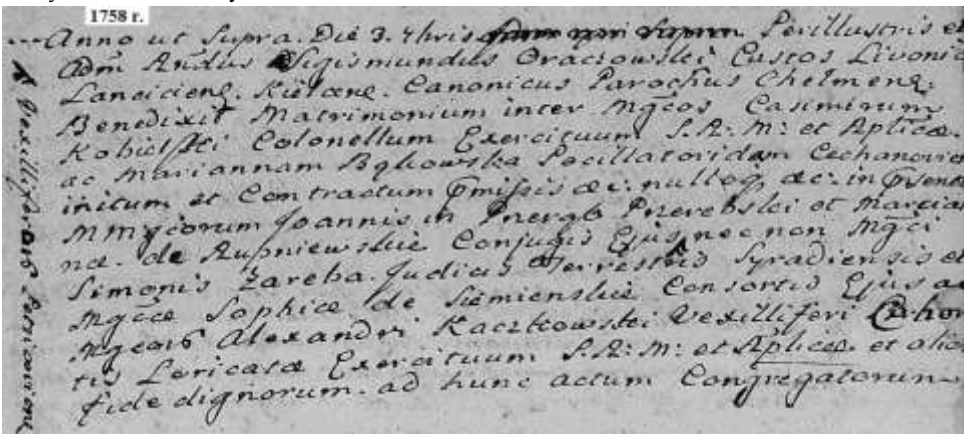 1758 r.
Anno ut Supra. Die 3. 7bris Perillustris et
Adm Rndus Sigismundus Oraczowski Custos Livonic
Lanciciens. Kielcens. Canonicus Parochus Chelmens.
Benedixit Matrimonium inter Mgcos Casimirum
Kobielski Colonellum Exercituum S. R: M: et Rplicæ.
ac Mariannam Bykowska Pocillatoridam Cechanovien
initum et Contractum pmissis &c: nulloq &c: in psentia
MMgcorum Joannis in Przerab Przerebski et Marcian
næ. de Rupniewskie Conjugis Ejus nec non Mgci
Simonis Zareba. Judicis Terrestris Syradiensis et
Mgcæ Sophiæ de Siemienskie Consortis Ejus ac
Mgcors Alexandri Kaczkowski Vexilliferi Cohor
tis Loricatæ Exercituum S. R: M: et Rplicæ. et alior
fide dignorum. ad hunc actum Congregatorum
Vexilliferors Petricoviens